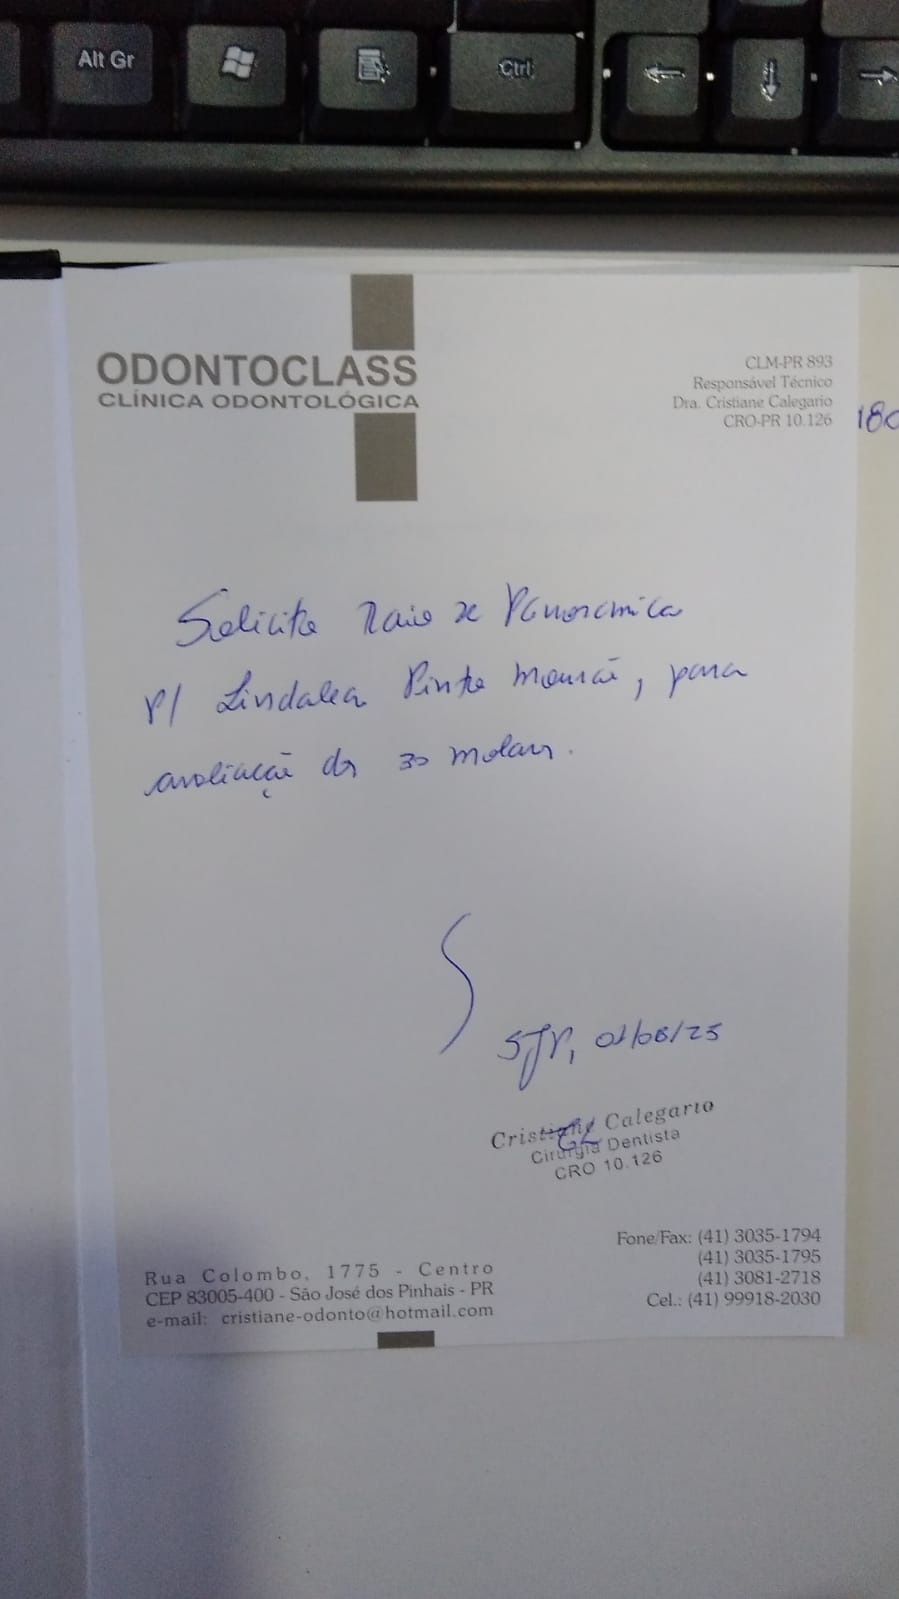 Alt Gr
Ctrl
ODONTOCLASS
CLÍNICA ODONTOLÓGICA
CLM-PR 893
Responsável Técnico
Dra. Cristiane Calegario
CRO-PR 10.126
180
Solicito Raio x Panorâmica
p/ Lindalva Pinto Mourão, para
avaliação de 3º molar.
SJP, 01/08/25
Cristiane Calegario
Cirurgiã Dentista
CRO 10.126
Rua Colombo, 1775 - Centro
CEP 83005-400 - São José dos Pinhais - PR
e-mail: cristiane-odonto@hotmail.com
Fone/Fax: (41) 3035-1794
(41) 3035-1795
(41) 3081-2718
Cel.: (41) 99918-2030